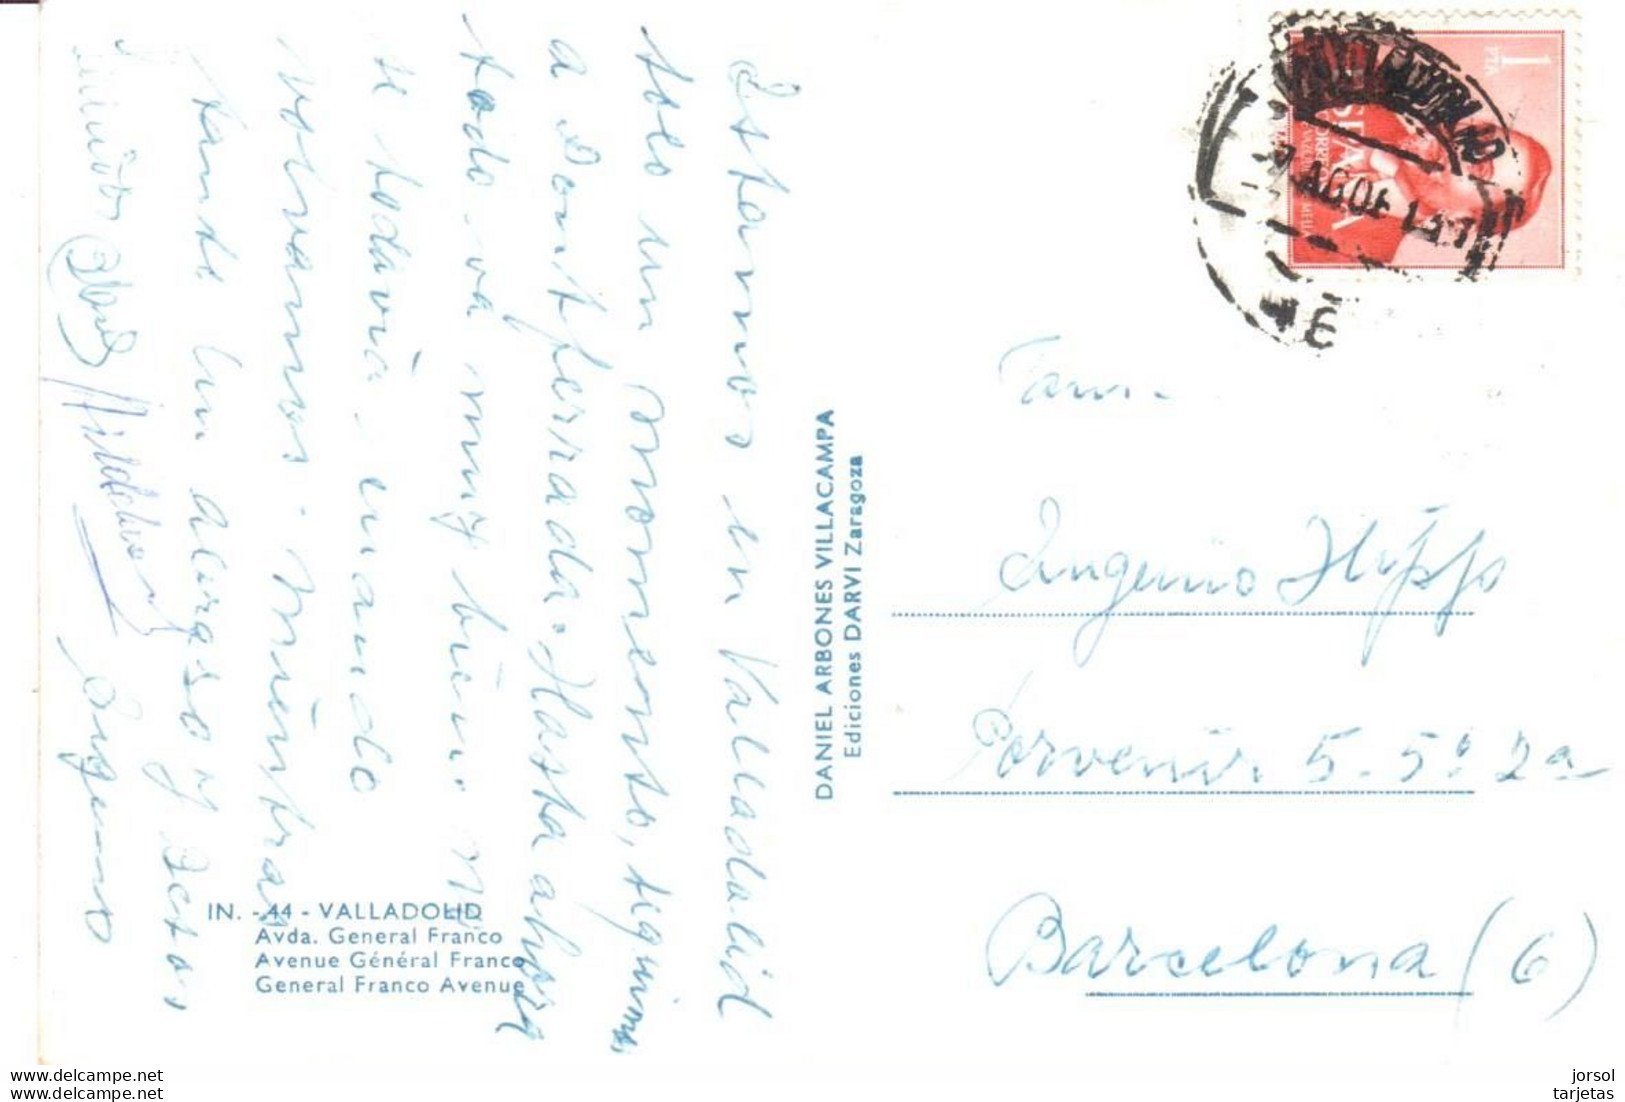 Estamos en Valladolid
solo un momento, seguimos
a Pontferrada. Hasta ahora
todo va muy bien. No
se todavia cuando
volvamos. Mientras
tanto un abrazo y besos
Eugenio
DANIEL ARBONES VILLACAMPA
Ediciones DARVI Zaragoza
IN. - 44 - VALLADOLID
Avda. General Franco
Avenue Général Franco
General Franco Avenue
1 PTA
ESPAÑA
CORREOS
AGO 61
Fam.
Eugenio Hipp
Porvenir 5. 5º 2ª
Barcelona (6)
www.delcampe.net
www.delcampe.net
jorsol
tarjetas